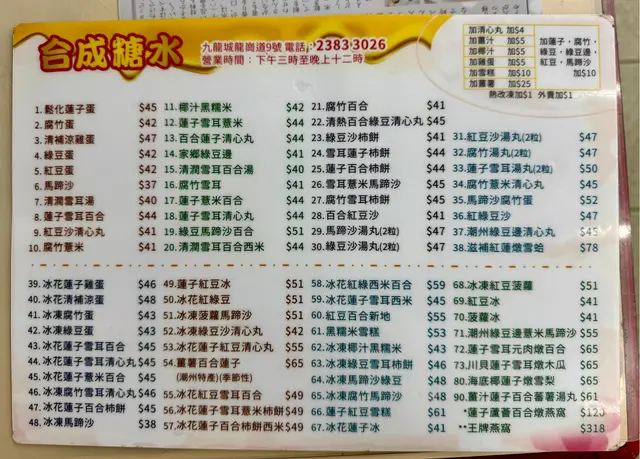 合成糖水
九龍城龍崗道9號 電話：2383 3026
營業時間：下午三時至晚上十二時
加清心丸 加$4
加薑汁 加$5
加椰汁 加$5
加雞蛋 加$5
加雪糕 加$10
加薑薯 加$25
加蓮子，腐竹，
綠豆，綠豆邊，
紅豆，馬蹄沙
加$10
熱改凍加$1 外賣加$1
1. 鬆化蓮子蛋 $45
2. 腐竹蛋 $42
3. 清補涼雞蛋 $47
4. 綠豆蛋 $42
5. 紅豆蛋 $42
6. 馬蹄沙 $37
7. 清潤雪耳湯 $40
8. 蓮子雪耳百合 $44
9. 紅豆沙清心丸 $41
10. 腐竹薏米 $41
11. 椰汁黑糯米 $42
12. 蓮子雪耳薏米 $44
13. 百合蓮子清心丸 $44
14. 家鄉綠豆邊 $41
15. 清潤雪耳百合湯 $40
16. 腐竹雪耳 $41
17. 蓮子薏米百合 $44
18. 蓮子雪耳清心丸 $44
19. 綠豆馬蹄沙百合 $51
20. 清潤雪耳百合西米 $44
21. 腐竹百合 $41
22. 清熱百合綠豆清心丸 $45
23. 綠豆沙柿餅 $41
24. 雪耳蓮子柿餅 $44
25. 蓮子百合柿餅 $44
26. 雪耳薏米馬蹄沙 $45
27. 腐竹雪耳柿餅 $44
28. 百合紅豆沙 $41
29. 馬蹄沙湯丸(2粒) $47
30. 綠豆沙湯丸(2粒) $47
31. 紅豆沙湯丸(2粒) $47
32. 腐竹湯丸(2粒) $47
33. 蓮子雪耳湯丸(2粒) $50
34. 腐竹薏米清心丸 $45
35. 馬蹄沙腐竹蛋 $52
36. 紅綠豆沙 $47
37. 潮州綠豆邊清心丸 $45
38. 滋補紅蓮燉雪蛤 $78
39. 冰花蓮子雞蛋 $46
40. 冰花清補涼蛋 $48
41. 冰凍腐竹蛋 $43
42. 冰凍綠豆蛋 $43
43. 冰花蓮子雪耳百合 $45
44. 冰花蓮子雪耳清心丸 $45
45. 冰花蓮子薏米百合 $45
46. 冰凍腐竹雪耳清心丸 $46
47. 冰花蓮子百合柿餅 $45
48. 冰凍馬蹄沙 $38
49. 蓮子紅豆冰 $51
50. 冰花紅綠豆 $51
51. 冰凍菠蘿馬蹄沙 $51
52. 冰凍綠豆沙清心丸 $42
53. 冰花蓮子紅豆清心丸 $55
54. 薑薯百合蓮子 $65
(潮州特產)(季節性)
55. 冰花紅豆雪耳百合 $49
56. 冰花蓮子雪耳薏米柿餅 $49
57. 冰花蓮子百合柿餅西米 $49
58. 冰花紅綠西米百合 $59
59. 冰花蓮子雪耳西米 $45
60. 紅豆百合新地 $55
61. 黑糯米雪糕 $53
62. 冰凍椰汁黑糯米 $43
63. 冰凍綠豆雪耳柿餅 $46
64. 冰凍馬蹄沙綠豆 $48
65. 冰花馬蹄沙雪耳百合 $48
66. 蓮子紅豆雪糕 $61
67. 冰花蓮子冰 $51
68. 冰凍紅豆菠蘿 $51
69. 紅豆冰 $41
70. 菠蘿冰 $41
71. 潮州綠豆邊薏米馬蹄沙 $55
72. 蓮子雪耳元肉燉百合 $65
73. 川貝蓮子雪耳燉木瓜 $65
80. 海底椰蓮子燉雪梨 $65
90. 薑汁蓮子百合蕃薯湯丸 $61
*蓮子蘆薈百合燉燕窩 $123
**王牌燕窩 $318